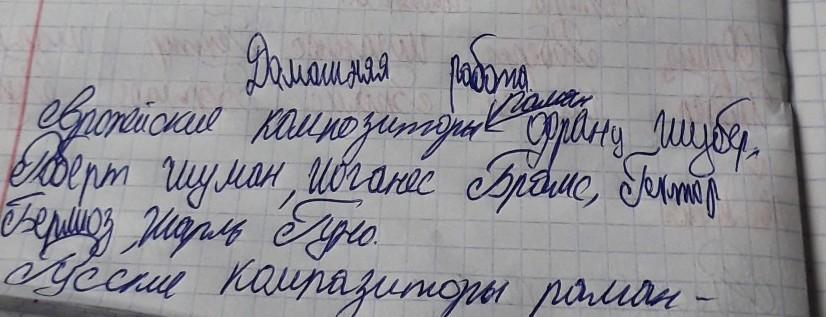 Домашняя работа.
роман
Европейские композиторы Франц Шубер,
Роберт Шуман, Иоганес Брамс, Гектор
Берлиоз, Шарль Гуно.
Русские компразиторы раман-